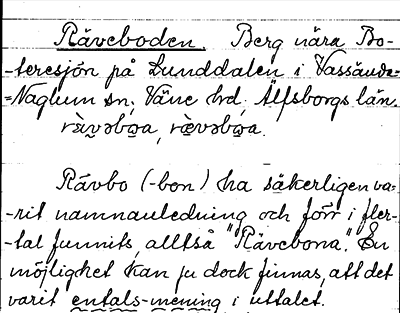 Räveboden. Berg nära Bo-
-teresjön på Lunddalen i Vassända-
=Naglum sn, Väne hd, Älfsborgs län.
Rävbo (-bon) ha säkerligen va-
-rit namnauledning och förr i fler-
-tal funnits, alltså "Rävebona". En
möjlighet kan ju dock finnas, att det
varit entals-mening i uttalet.